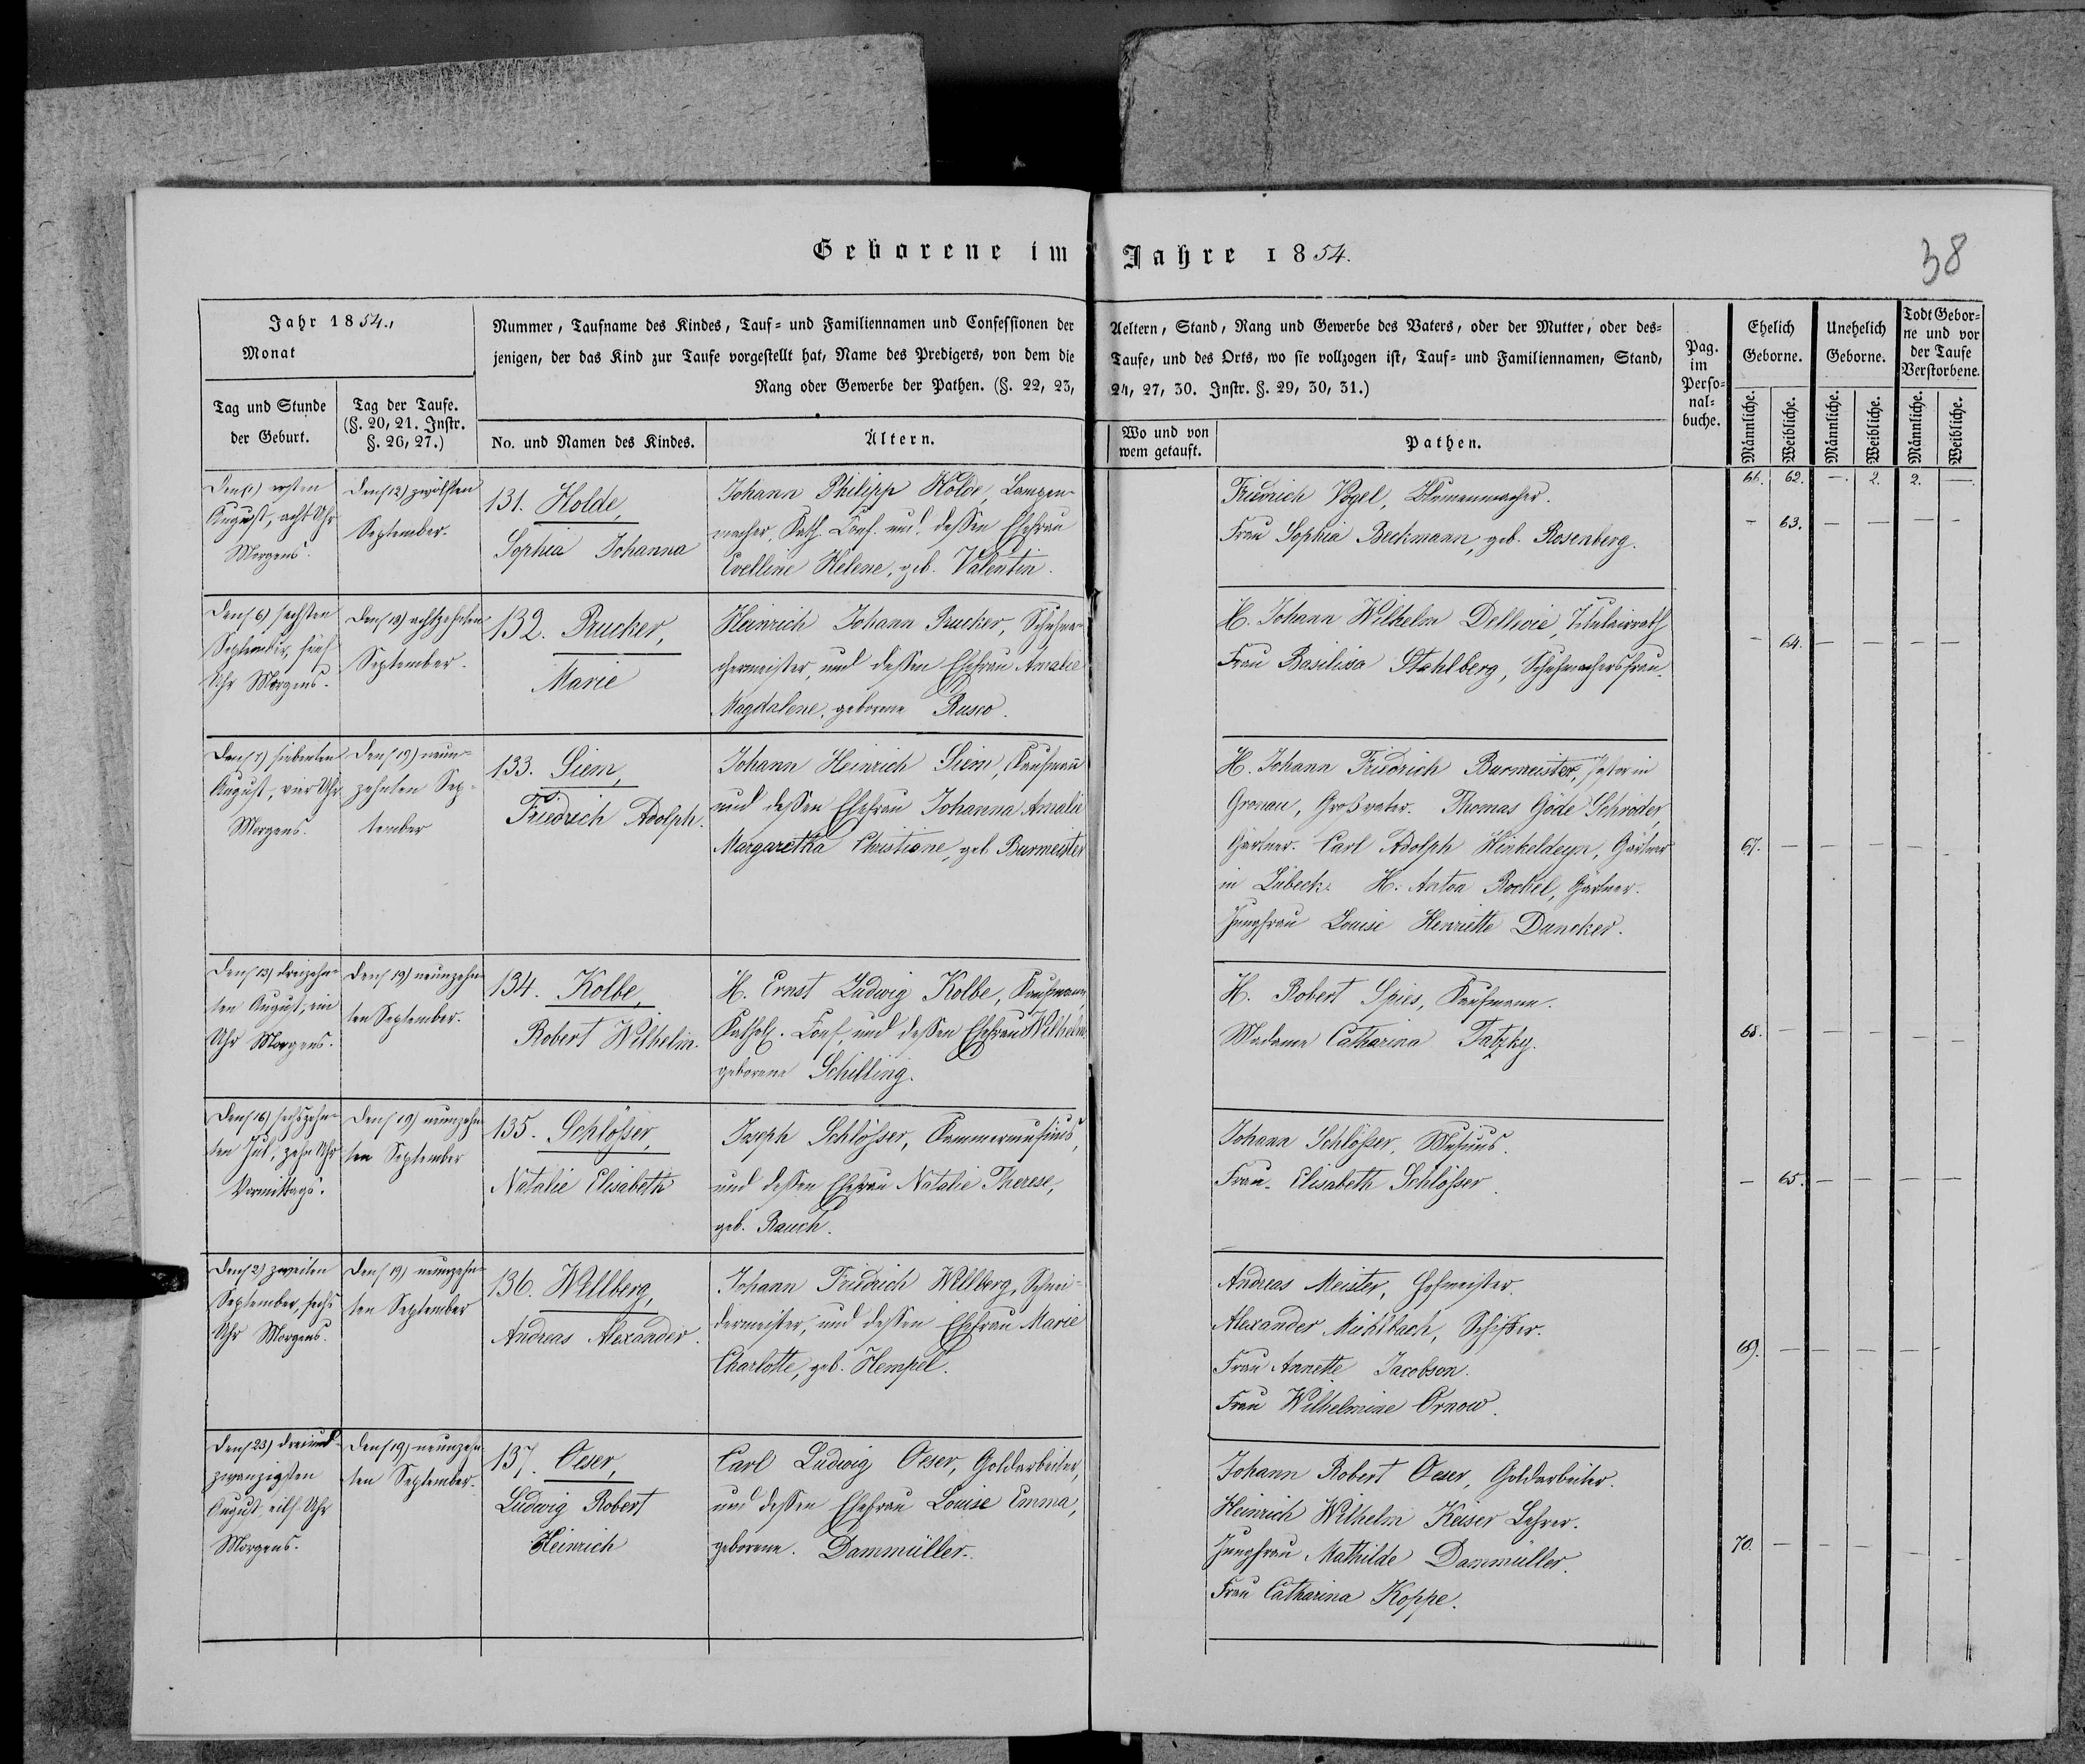 Geborene im Jahre 1854.
38
Jahr 1854.,
Monat
Tag und Stunde
der Geburt.
Tag der Taufe.
(§. 20, 21. Instr.
§. 26, 27.)
Nummer, Taufname des Kindes, Tauf= und Familiennamen und Confessionen der Aeltern, Stand, Rang und Gewerbe des Vaters, oder der Mutter, oder des=
jenigen, der das Kind zur Taufe vorgestellt hat, Name des Predigers, von dem die Taufe, und des Orts, wo sie vollzogen ist, Tauf= und Familiennamen, Stand,
Rang oder Gewerbe der Pathen. (§. 22, 23, 24, 27, 30. Instr. §. 29, 30, 31.)
No. und Namen des Kindes.
Ältern.
Wo und von
wem getauft.
Pathen.
Pag.
im
Perso=
nal=
buche.
Ehelich
Geborne.
Unehelich
Geborne.
Todt Gebor=
ne und vor
der Taufe
Verstorbene.
Männliche.
Weibliche.
Männliche.
Weibliche.
Männliche.
Weibliche.
66. 62. —. 2. 2. —.
Den (1) ersten
August, acht Uhr
Morgens.
Den (12) zwölften
September.
131. Holde,
Sophia Johanna
Johann Philipp Holde, Lampen-
macher, Kath. Conf. und dessen Ehefrau
Evelline Helene, geb. Valentin.
Friedrich Vogel, Blumenmacher.
Frau Sophia Beckmann, geb. Rosenberg.
— 63. — — — —
Den (6) sechsten
September, fünf
Uhr Morgens.
Den (18) achtzehnten
September.
132. Prucker,
Marie
Heinrich Johann Prucker, Schuhma-
chermeister, und dessen Ehefrau Amalie
Magdalene, geborene Rusco.
H. Johann Wilhelm Dellevie, Titulairrath
Frau Basilisa Stahlberg, Schuhmachersfrau.
— 64. — — — —
Den (7) siebenten
August, vier Uhr
Morgens.
Den (19) neun-
zehnten Sep-
tember
133. Siem,
Friedrich Adolph.
Johann Heinrich Siem, Kaufmann
und dessen Ehefrau Johanna Amalie
Margaretha Christiane, geb. Burmeister
H. Johann Friedrich Burmeister, Pastor in
Gronau, Großvater. Thomas Göde Schröder,
Gärtner. Carl Adolph Hinkeldeyn, Gärtner
in Lübeck. H. Anton Rockel, Gärtner.
Jungfrau Louise Henriette Duncker.
67. — — — — —
Den (13) dreizehn-
ten August, ein
Uhr Morgens.
Den (19) neunzehn-
ten September.
134. Kolbe,
Robert Wilhelm.
H. Ernst Ludwig Kolbe, Kaufmann,
Kathol. Conf., und dessen Ehefrau Wilhelm.
geborene Schilling.
H. Robert Spies, Kaufmann.
Madame Catharina Tatzky.
68. — — — — —
Den (16) sechszehn-
ten Juli, zehn Uhr
Vormittags.
Den (19) neunzehn-
ten September
135. Schlösser,
Natalie Elisabeth
Joseph Schlösser, Kammermusicus,
und dessen Ehefrau Natalie Therese,
geb. Rauch.
Johann Schlösser, Musicus.
Frau Elisabeth Schlösser.
— 65. — — — —
Den (2) zweiten
September, sechs
Uhr Morgens.
Den (19) neunzehn-
ten September
136. Willberg,
Andreas Alexander.
Johann Friedrich Willberg, Schnei-
dermeister, und dessen Ehefrau Marie
Charlotte, geb. Hempel.
Andreas Meister, Hofmeister.
Alexander Mühlbach, Schiffer.
Frau Annette Jacobson.
Frau Wilhelmine Ornow.
69. — — — — —
Den (23) dreiund-
zwanzigsten
August, eilf Uhr
Morgens.
Den (19) neunzehn-
ten September.
137. Oeser,
Ludwig Robert
Heinrich
Carl Ludwig Oeser, Goldarbeiter,
und dessen Ehefrau Louise Emma,
geborene. Dammüller.
Johann Robert Oeser, Goldarbeiter.
Heinrich Wilhelm Keiser Lehrer.
Jungfrau Mathilde Dammüller.
Frau Catharina Koppe.
70. — — — — —